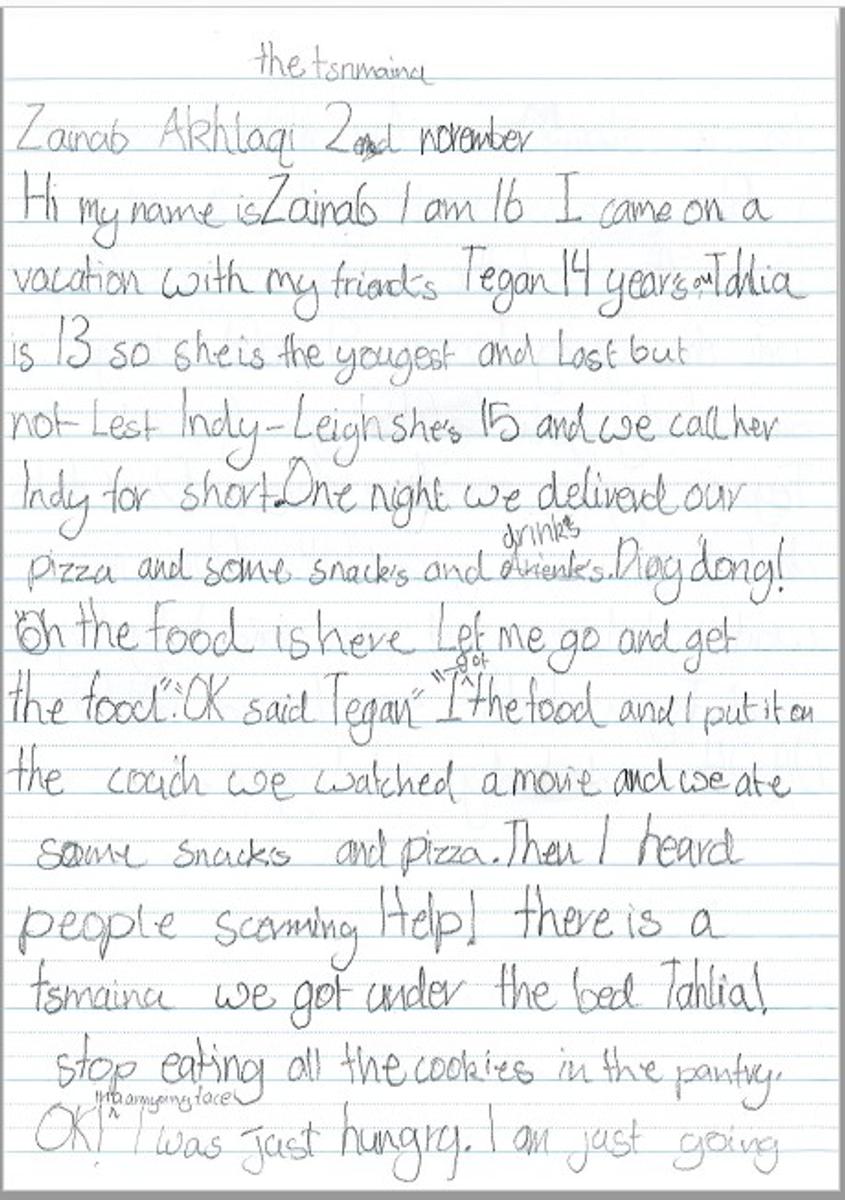 the tsnmaina
Zainab Akhlaqi 2nd november
Hi my name is Zainab I am 16 I came on a
vacation with my friends Tegan 14 years Tahlia
is 13 so she is the yougest and last but
not Lest Indy-Leigh she's 15 and we call her
Indy for short. One night we deliverd our
drinks
pizza and some snacks and drienks. Ding dong!
"Oh the food is here Let me go and get
got
the food". "OK said Tegan" "I the food and I put it on
the couch we watched a movie and we ate
some snacks and pizza. Then I heard
people scerming Help! there is a
tsmaina we got under the bed Tahlia!
stop eating all the cookies in the pantry.
face
OK! I was just hungry. I am just going